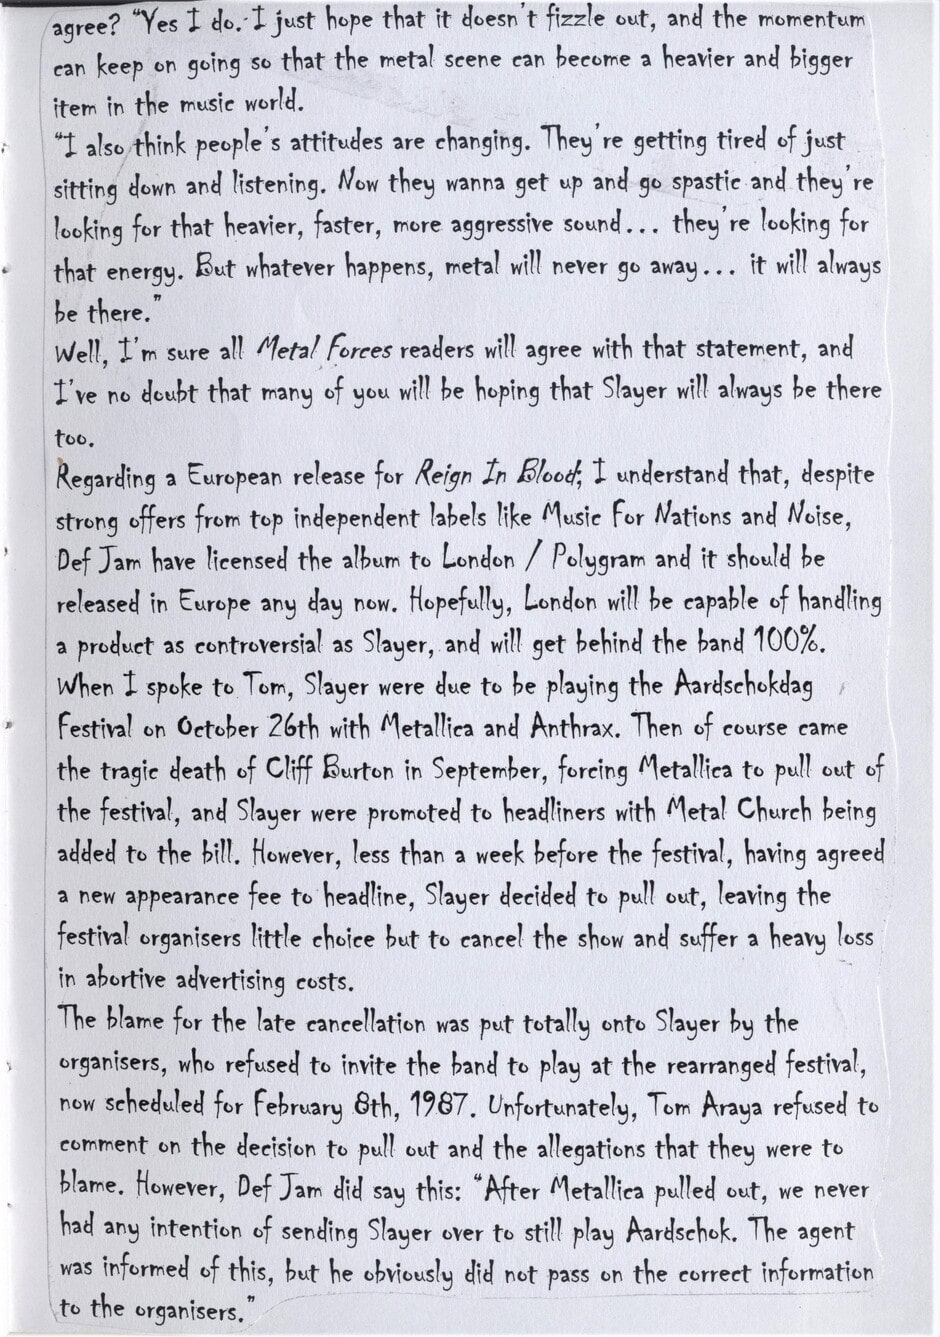 agree? "Yes I do. I just hope that it doesn't fizzle out, and the momentum
can keep on going so that the metal scene can become a heavier and bigger
item in the music world.
"I also think people's attitudes are changing. They're getting tired of just
sitting down and listening. Now they wanna get up and go spastic and they're
looking for that heavier, faster, more aggressive sound... they're looking for
that energy. But whatever happens, metal will never go away... it will always
be there."
Well, I'm sure all Metal Forces readers will agree with that statement, and
I've no doubt that many of you will be hoping that Slayer will always be there
too.
Regarding a European release for Reign In Blood; I understand that, despite
strong offers from top independent labels like Music For Nations and Noise,
Def Jam have licensed the album to London / Polygram and it should be
released in Europe any day now. Hopefully, London will be capable of handling
a product as controversial as Slayer, and will get behind the band 100%.
When I spoke to Tom, Slayer were due to be playing the Aardschokdag
Festival on October 26th with Metallica and Anthrax. Then of course came
the tragic death of Cliff Burton in September, forcing Metallica to pull out of
the festival, and Slayer were promoted to headliners with Metal Church being
added to the bill. However, less than a week before the festival, having agreed
a new appearance fee to headline, Slayer decided to pull out, leaving the
festival organisers little choice but to cancel the show and suffer a heavy loss
in abortive advertising costs.
The blame for the late cancellation was put totally onto Slayer by the
organisers, who refused to invite the band to play at the rearranged festival,
now scheduled for February 8th, 1987. Unfortunately, Tom Araya refused to
comment on the decision to pull out and the allegations that they were to
blame. However, Def Jam did say this: "After Metallica pulled out, we never
had any intention of sending Slayer over to still play Aardschok. The agent
was informed of this, but he obviously did not pass on the correct information
to the organisers."